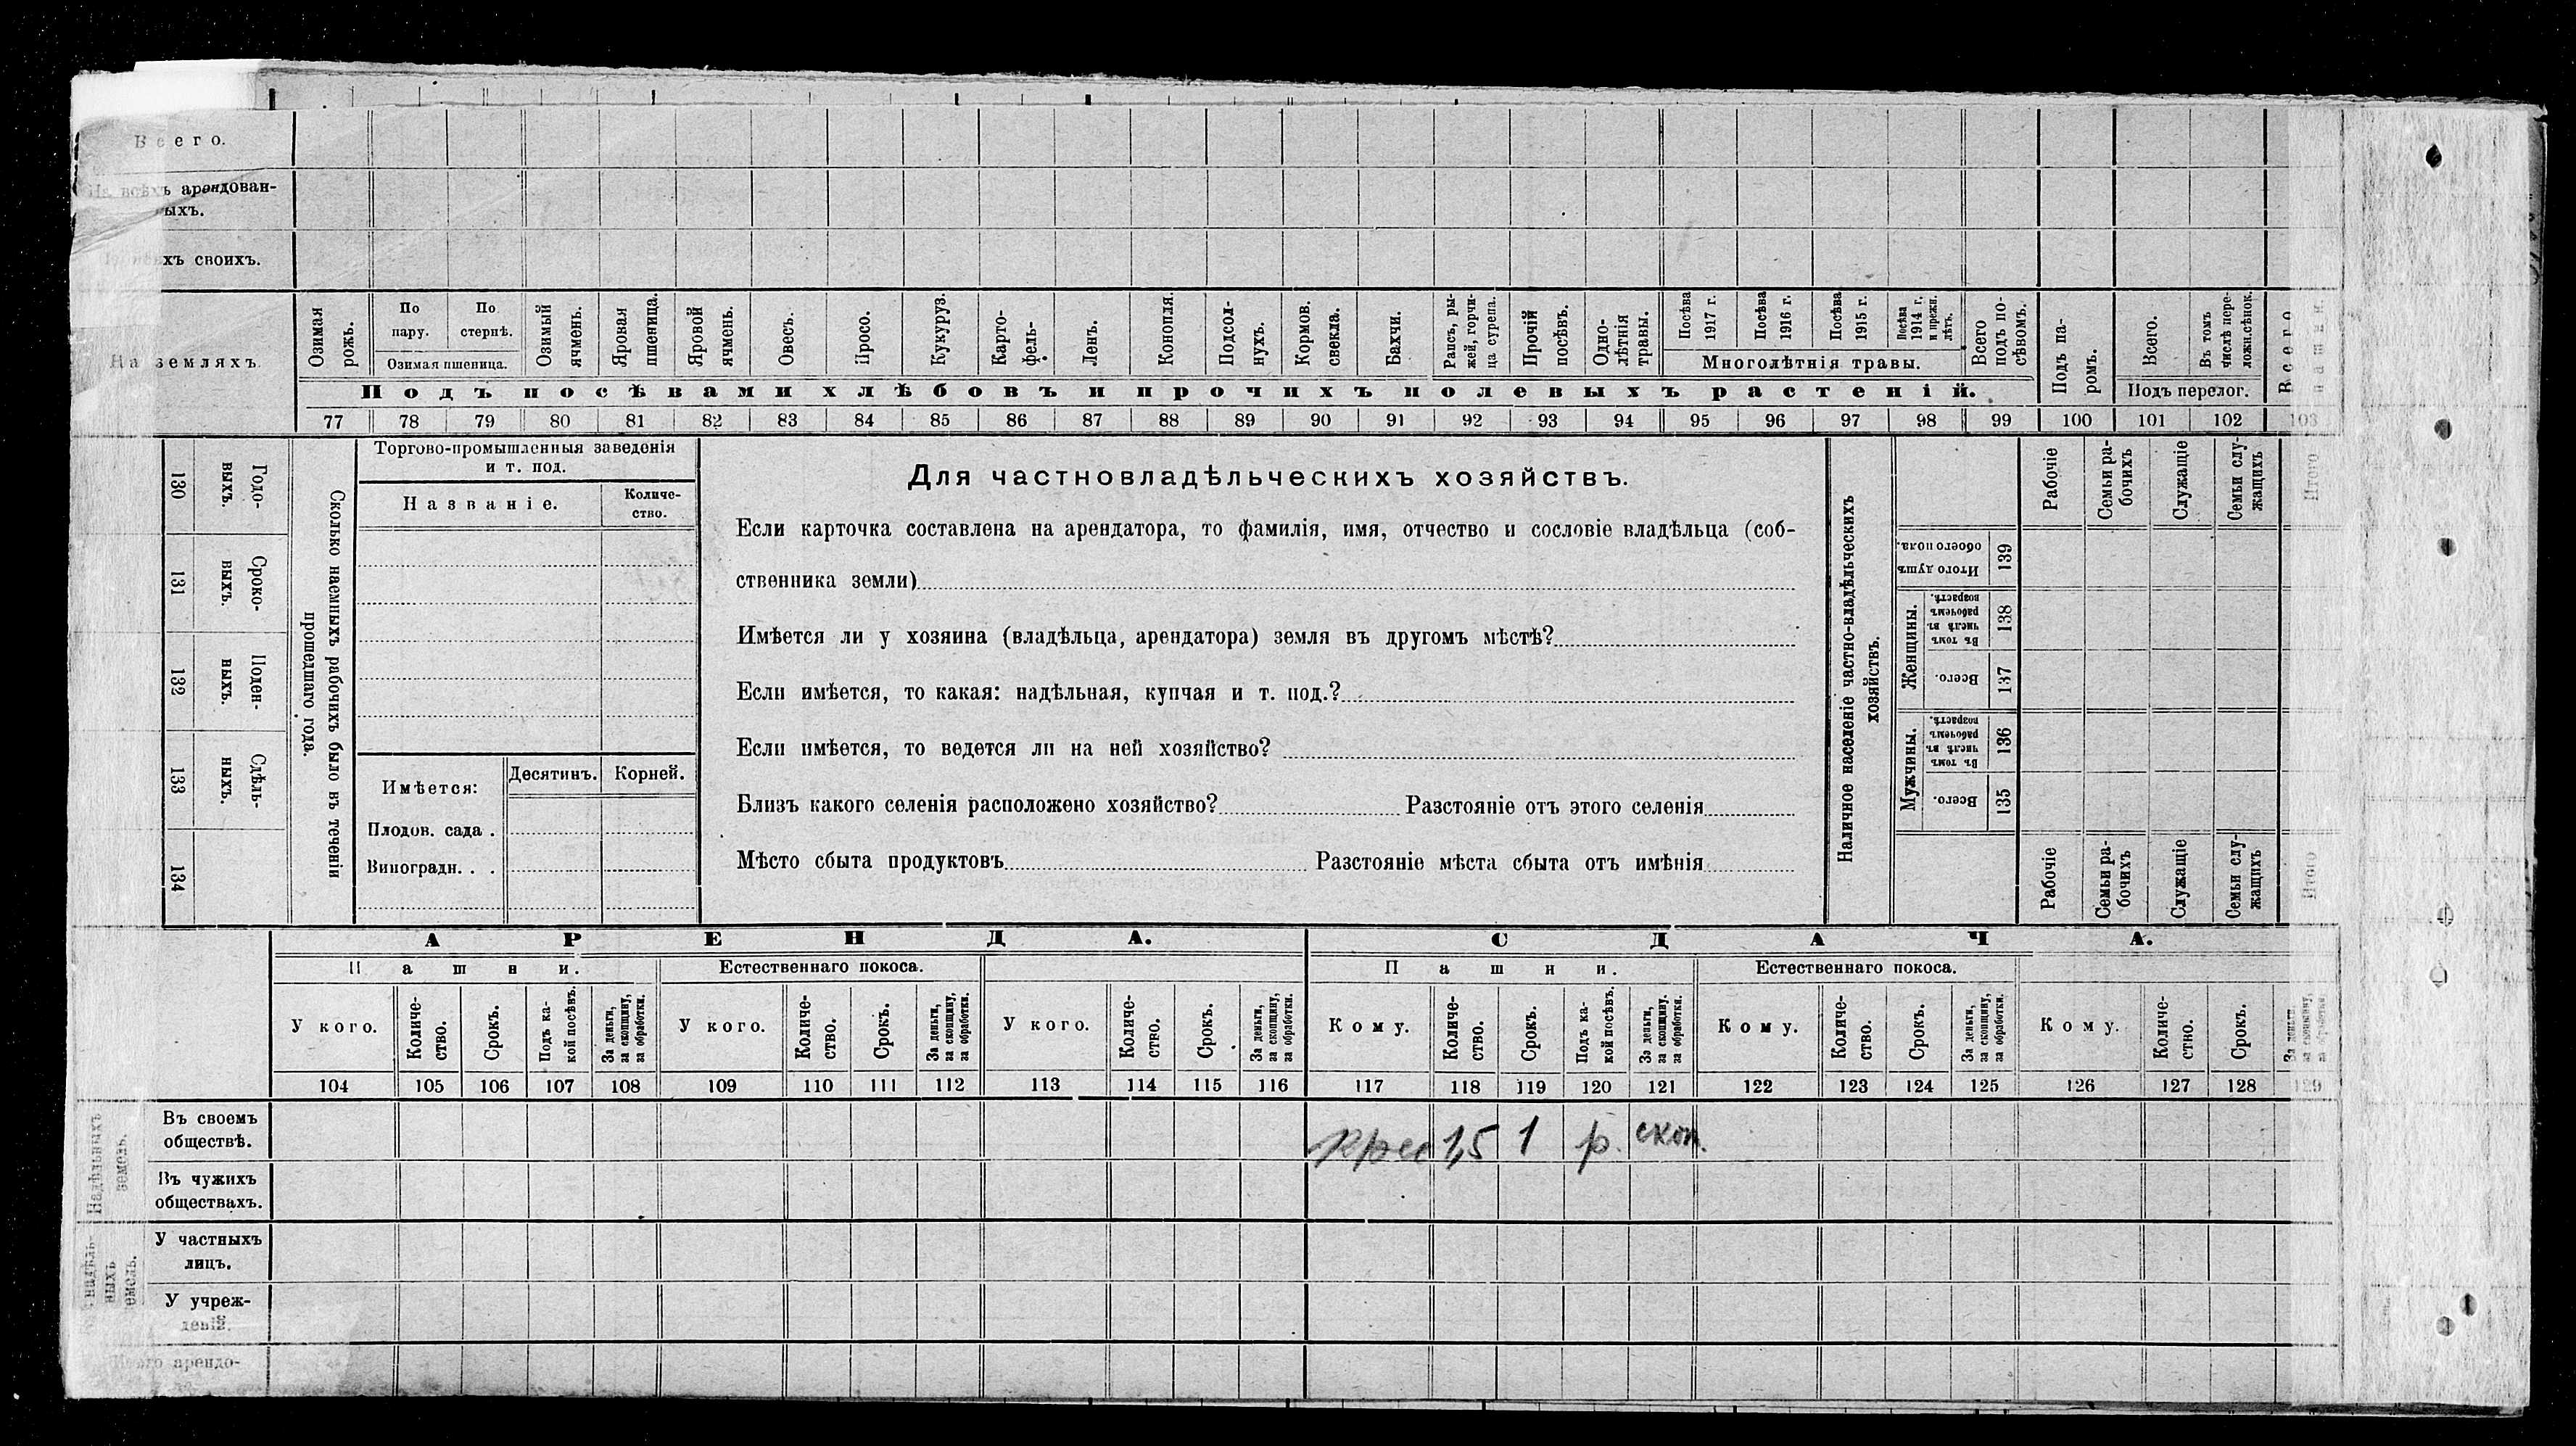 Всего.
На всѣхъ арендован-
ыхъ.
хъ своихъ.
На земляхъ.
Озимая рожь.
По пару.
По стернѣ.
Озимая пшеница.
Озимый ячмень.
Яровая пшеница.
Яровой ячмень.
Овесъ.
Просо.
Кукуруз.
Карто-
фель.
Ленъ.
Конопля.
Подсол-
нухъ.
Кормов. свекла.
Бахчи.
Рапсъ, ры-
жей, горчи-
ца сурепа.
Прочій посѣвъ.
Одно-
лѣтнія травы.
Посѣва 1917 г.
Посѣва 1916 г.
Посѣва 1915 г.
Посѣва 1914 г. и прежн. лѣтъ.
Многолѣтнія травы.
Всего подъ по-
сѣвомъ.
Подъ па-
ромъ.
Всего.
Въ томъ числѣ пере-
ложн.сѣнок.
Подъ перелог.
Всего пашни.
Подъ посѣвами хлѣбовъ и прочихъ полевыхъ растеній.
77 78 79 80 81 82 83 84 85 86 87 88 89 90 91 92 93 94 95 96 97 98 99 100 101 102 103
130 Годо-
выхъ.
131 Сроко-
выхъ.
132 Поден-
ныхъ.
133 Сдѣль-
ныхъ.
134
Сколько наемныхъ рабочихъ было въ теченіи
прошедшаго года.
Торгово-промышленныя заведенія
и т. под.
Названіе.
Количе-
ство.
Имѣется:
Десятинъ.
Корней.
Плодов. сада .
Виноградн. . .
Для частновладѣльческихъ хозяйствъ.
Если карточка составлена на арендатора, то фамилія, имя, отчество и сословіе владѣльца (соб-
ственника земли)
Имѣется ли у хозяина (владѣльца, арендатора) земля въ другомъ мѣстѣ?
Если имѣется, то какая: надѣльная, купчая и т. под.?
Если имѣется, то ведется ли на ней хозяйство?
Близъ какого селенія расположено хозяйство? Разстояніе отъ этого селенія
Мѣсто сбыта продуктовъ Разстояніе мѣста сбыта отъ имѣнія
Наличное населеніе частно-владѣльческихъ
хозяйствъ.
Рабочіе
Семьи ра-
бочихъ
Служащіе
Семьи слу-
жащихъ
Итого
Итого душъ обоего пола.
139
Женщины.
Въ томъ числѣ въ рабочемъ возрастѣ.
138
Всего.
137
Мужчины.
Въ томъ числѣ въ рабочемъ возрастѣ.
136
Всего.
135
Рабочіе
Семьи ра-
бочихъ
Служащіе
Семьи слу-
жащихъ
Итого
АРЕНДА.
СДАЧА.
Пашни.
Естественнаго покоса.
Пашни.
Естественнаго покоса.
У кого.
Количе-
ство.
Срокъ.
Подъ ка-
кой посѣвъ.
За деньги, за скопщину, за обработки.
У кого.
Количе-
ство.
Срокъ.
За деньги, за скопщину, за обработки.
У кого.
Количе-
ство.
Срокъ.
За деньги, за скопщину, за обработки.
Кому.
Количе-
ство.
Срокъ.
Подъ ка-
кой посѣвъ.
За деньги, за скопщину, за обработки.
Кому.
Количе-
ство.
Срокъ.
За деньги, за скопщину, за обработки.
Кому.
Количе-
ство.
Срокъ.
За деньги, за скопщину, за обработки.
104 105 106 107 108 109 110 111 112 113 114 115 116 117 118 119 120 121 122 123 124 125 126 127 128 129
Надѣльныхъ земель.
Въ своемъ
обществѣ.
крес 1,5 1 р. скоп.
Въ чужихъ
обществахъ.
надѣль-
ныхъ
У частныхъ
лицъ.
У учреж-
деній.
Итого арендо-